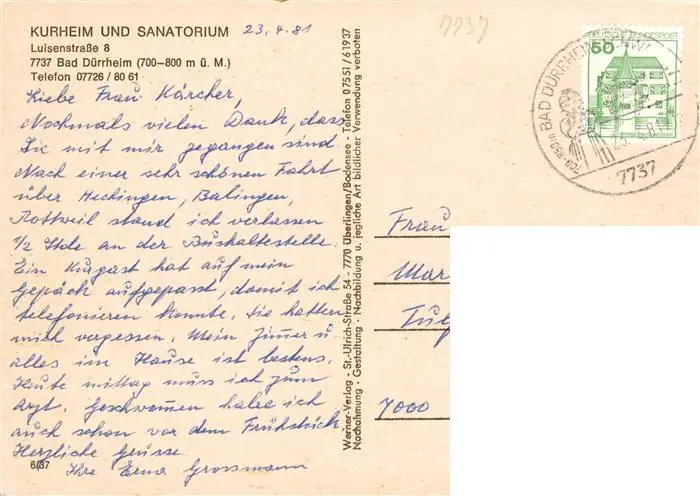 KURHEIM UND SANATORIUM 23.4.81
Luisenstraße 8
7737 Bad Dürrheim (700–800 m ü. M.)
Telefon 07726 / 80 61
Liebe Frau Kärcher,
Nochmals vielen Dank, dass
Sie mit mir gegangen sind.
Nach einer sehr schönen Fahrt
über Hechingen, Balingen,
Rottweil stand ich verlassen
1/2 Stde an der Bushaltestelle.
Ein Kurgast hat auf mein
Gepäck aufgepasst, damit ich
telefonieren konnte. Sie hatten
mich vergessen. Mein Zimer u
alles im Hause ist bestens.
Heute mittag muss ich zum
Arzt. Geschwomen habe ich
auch schon vor dem Frühstück.
Herzliche Grüsse
Ihre Erna Grossmann
6/37
Werner-Verlag - St.-Ulrich-Straße 54 - 7770 Überlingen/Bodensee - Telefon 07551/61937
Nachahmung - Gestaltung - Nachbildung u. jegliche Art bildlicher Verwendung verboten
7737
50
BUNDESPOST
BAD DÜRRHEIM
7737
Frau
Mar
Tul
7000